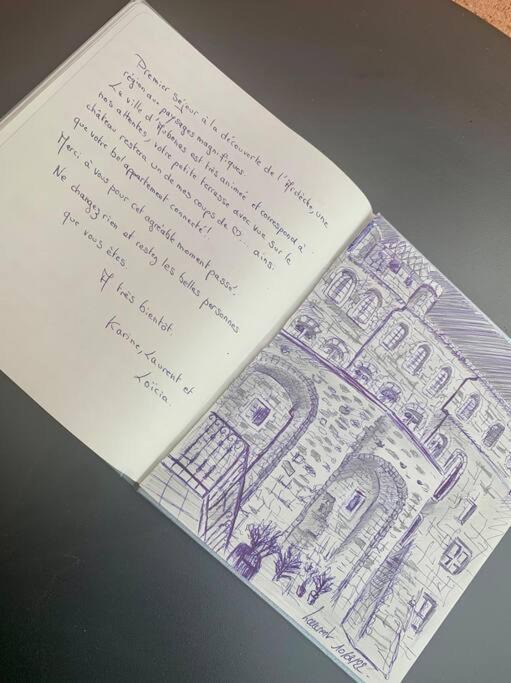 Premier séjour à la découverte de l'Ardèche, une
région aux paysages magnifiques.
La ville d'Aubenas est très animée et correspond à
nos attentes, votre petite terrasse avec vue sur le
château restera un de mes coups de ♡... ainsi
que votre bel appartement connecté!!
Merci à vous pour cet agréable moment passé.
Ne changez rien et restez les belles personnes
que vous êtes.
A très bientôt.
Karine, Laurent et
Loïcia.
Laurent